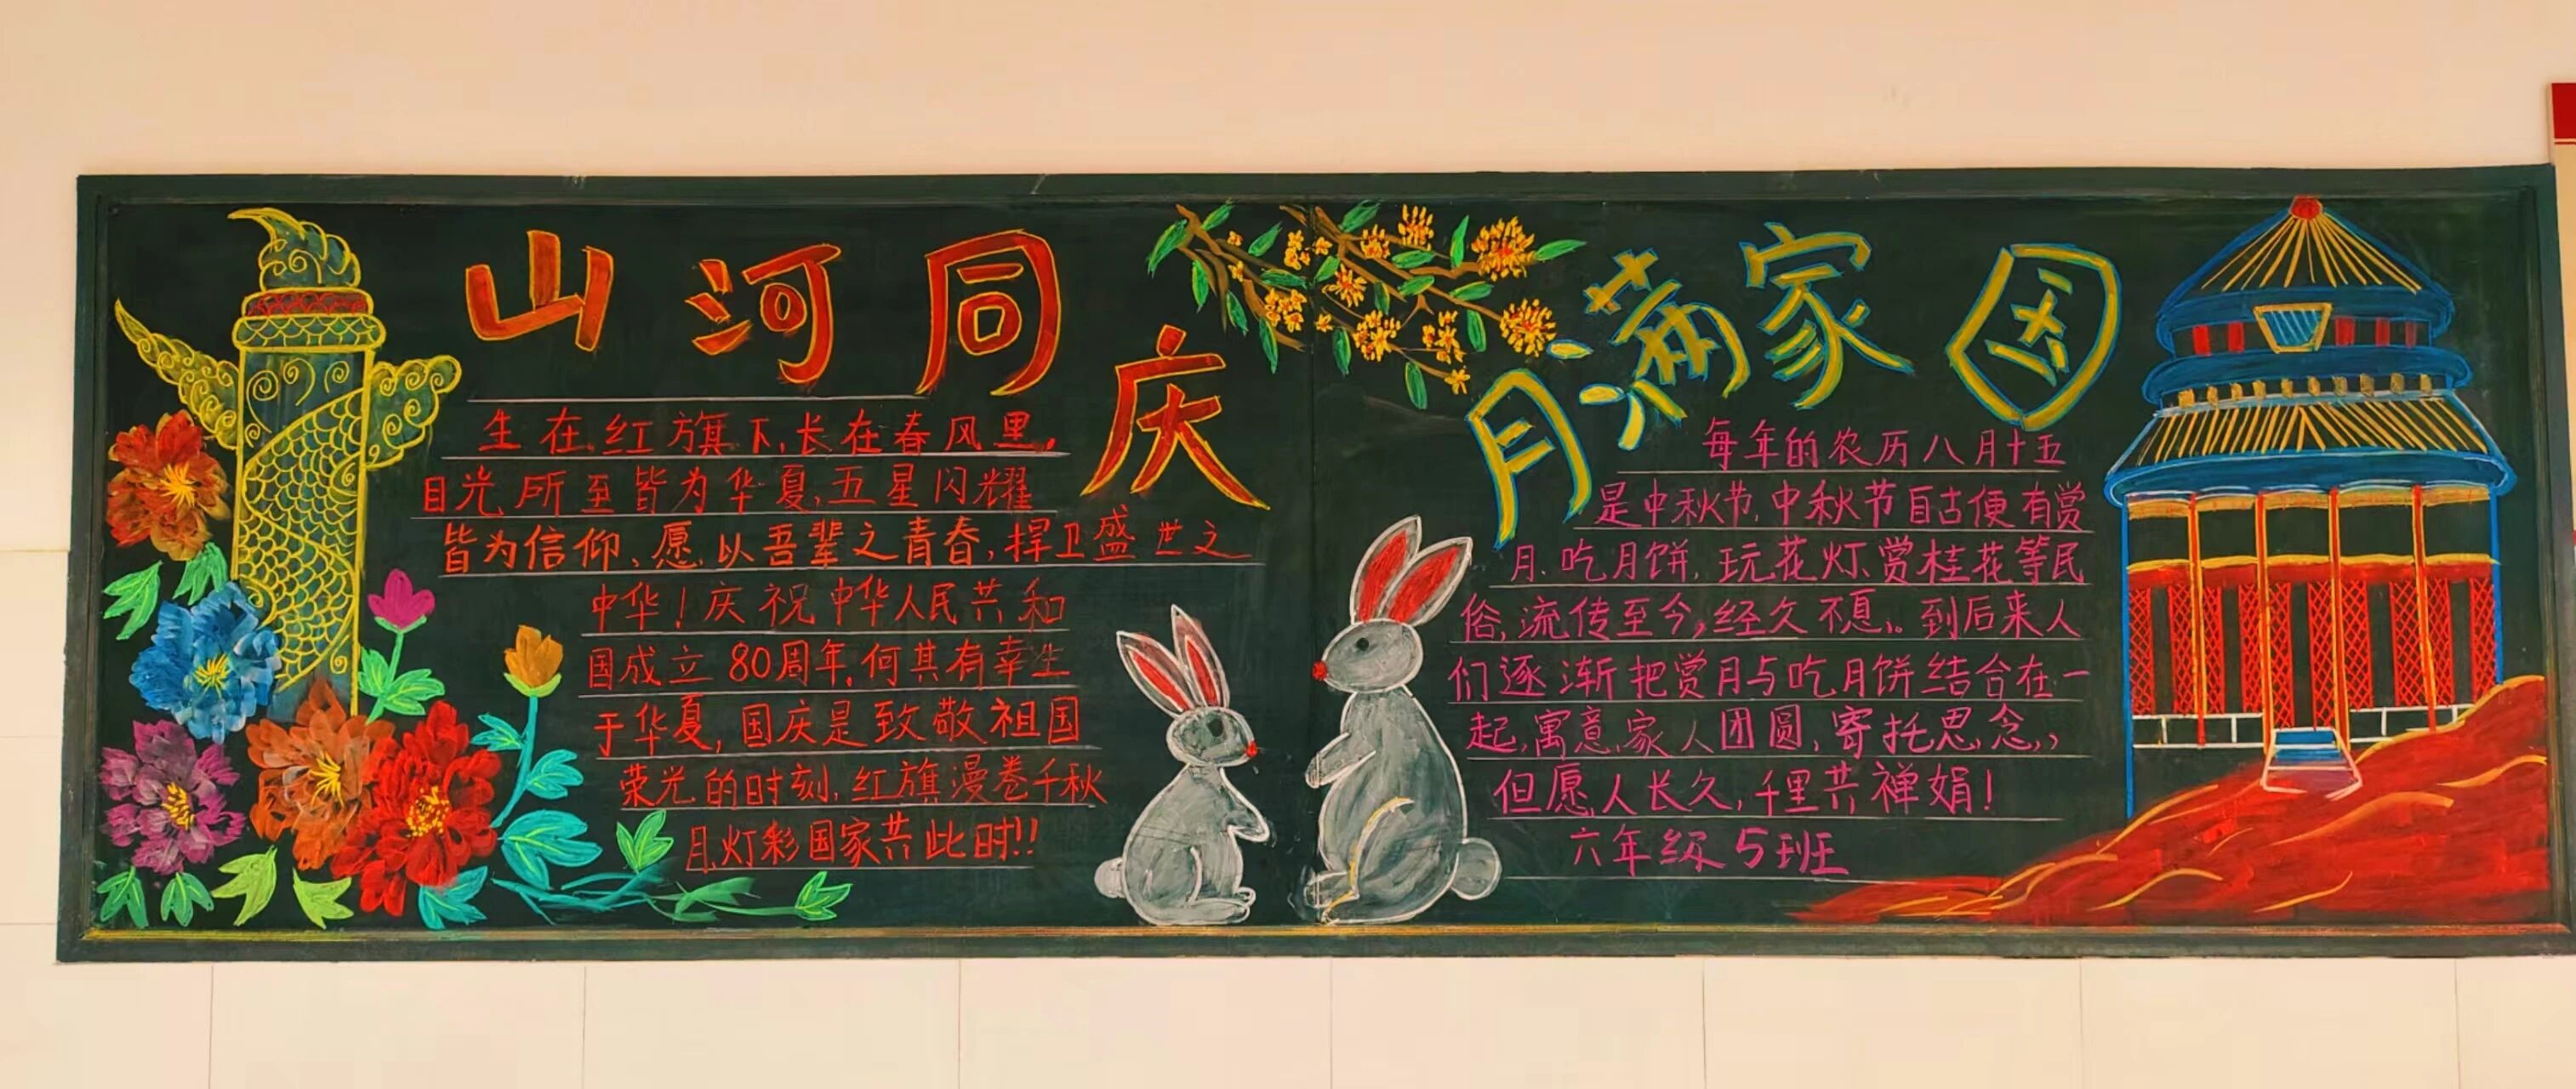 山河同庆
生在红旗下,长在春风里,
目光所至皆为华夏,五星闪耀
皆为信仰、愿以吾辈之青春,捍卫盛世之
中华!庆祝中华人民共和
国成立80周年,何其有幸生
于华夏,国庆是致敬祖国
荣光的时刻,红旗漫卷千秋
月,灯彩国家共此时!!
月满家国
每年的农历八月十五
是中秋节,中秋节自古便有赏
月、吃月饼,玩花灯、赏桂花等民
俗,流传至今,经久不息。到后来人
们逐渐把赏月与吃月饼结合在一
起,寓意家人团圆,寄托思念,
但愿人长久,千里共禅娟!
六年级5班